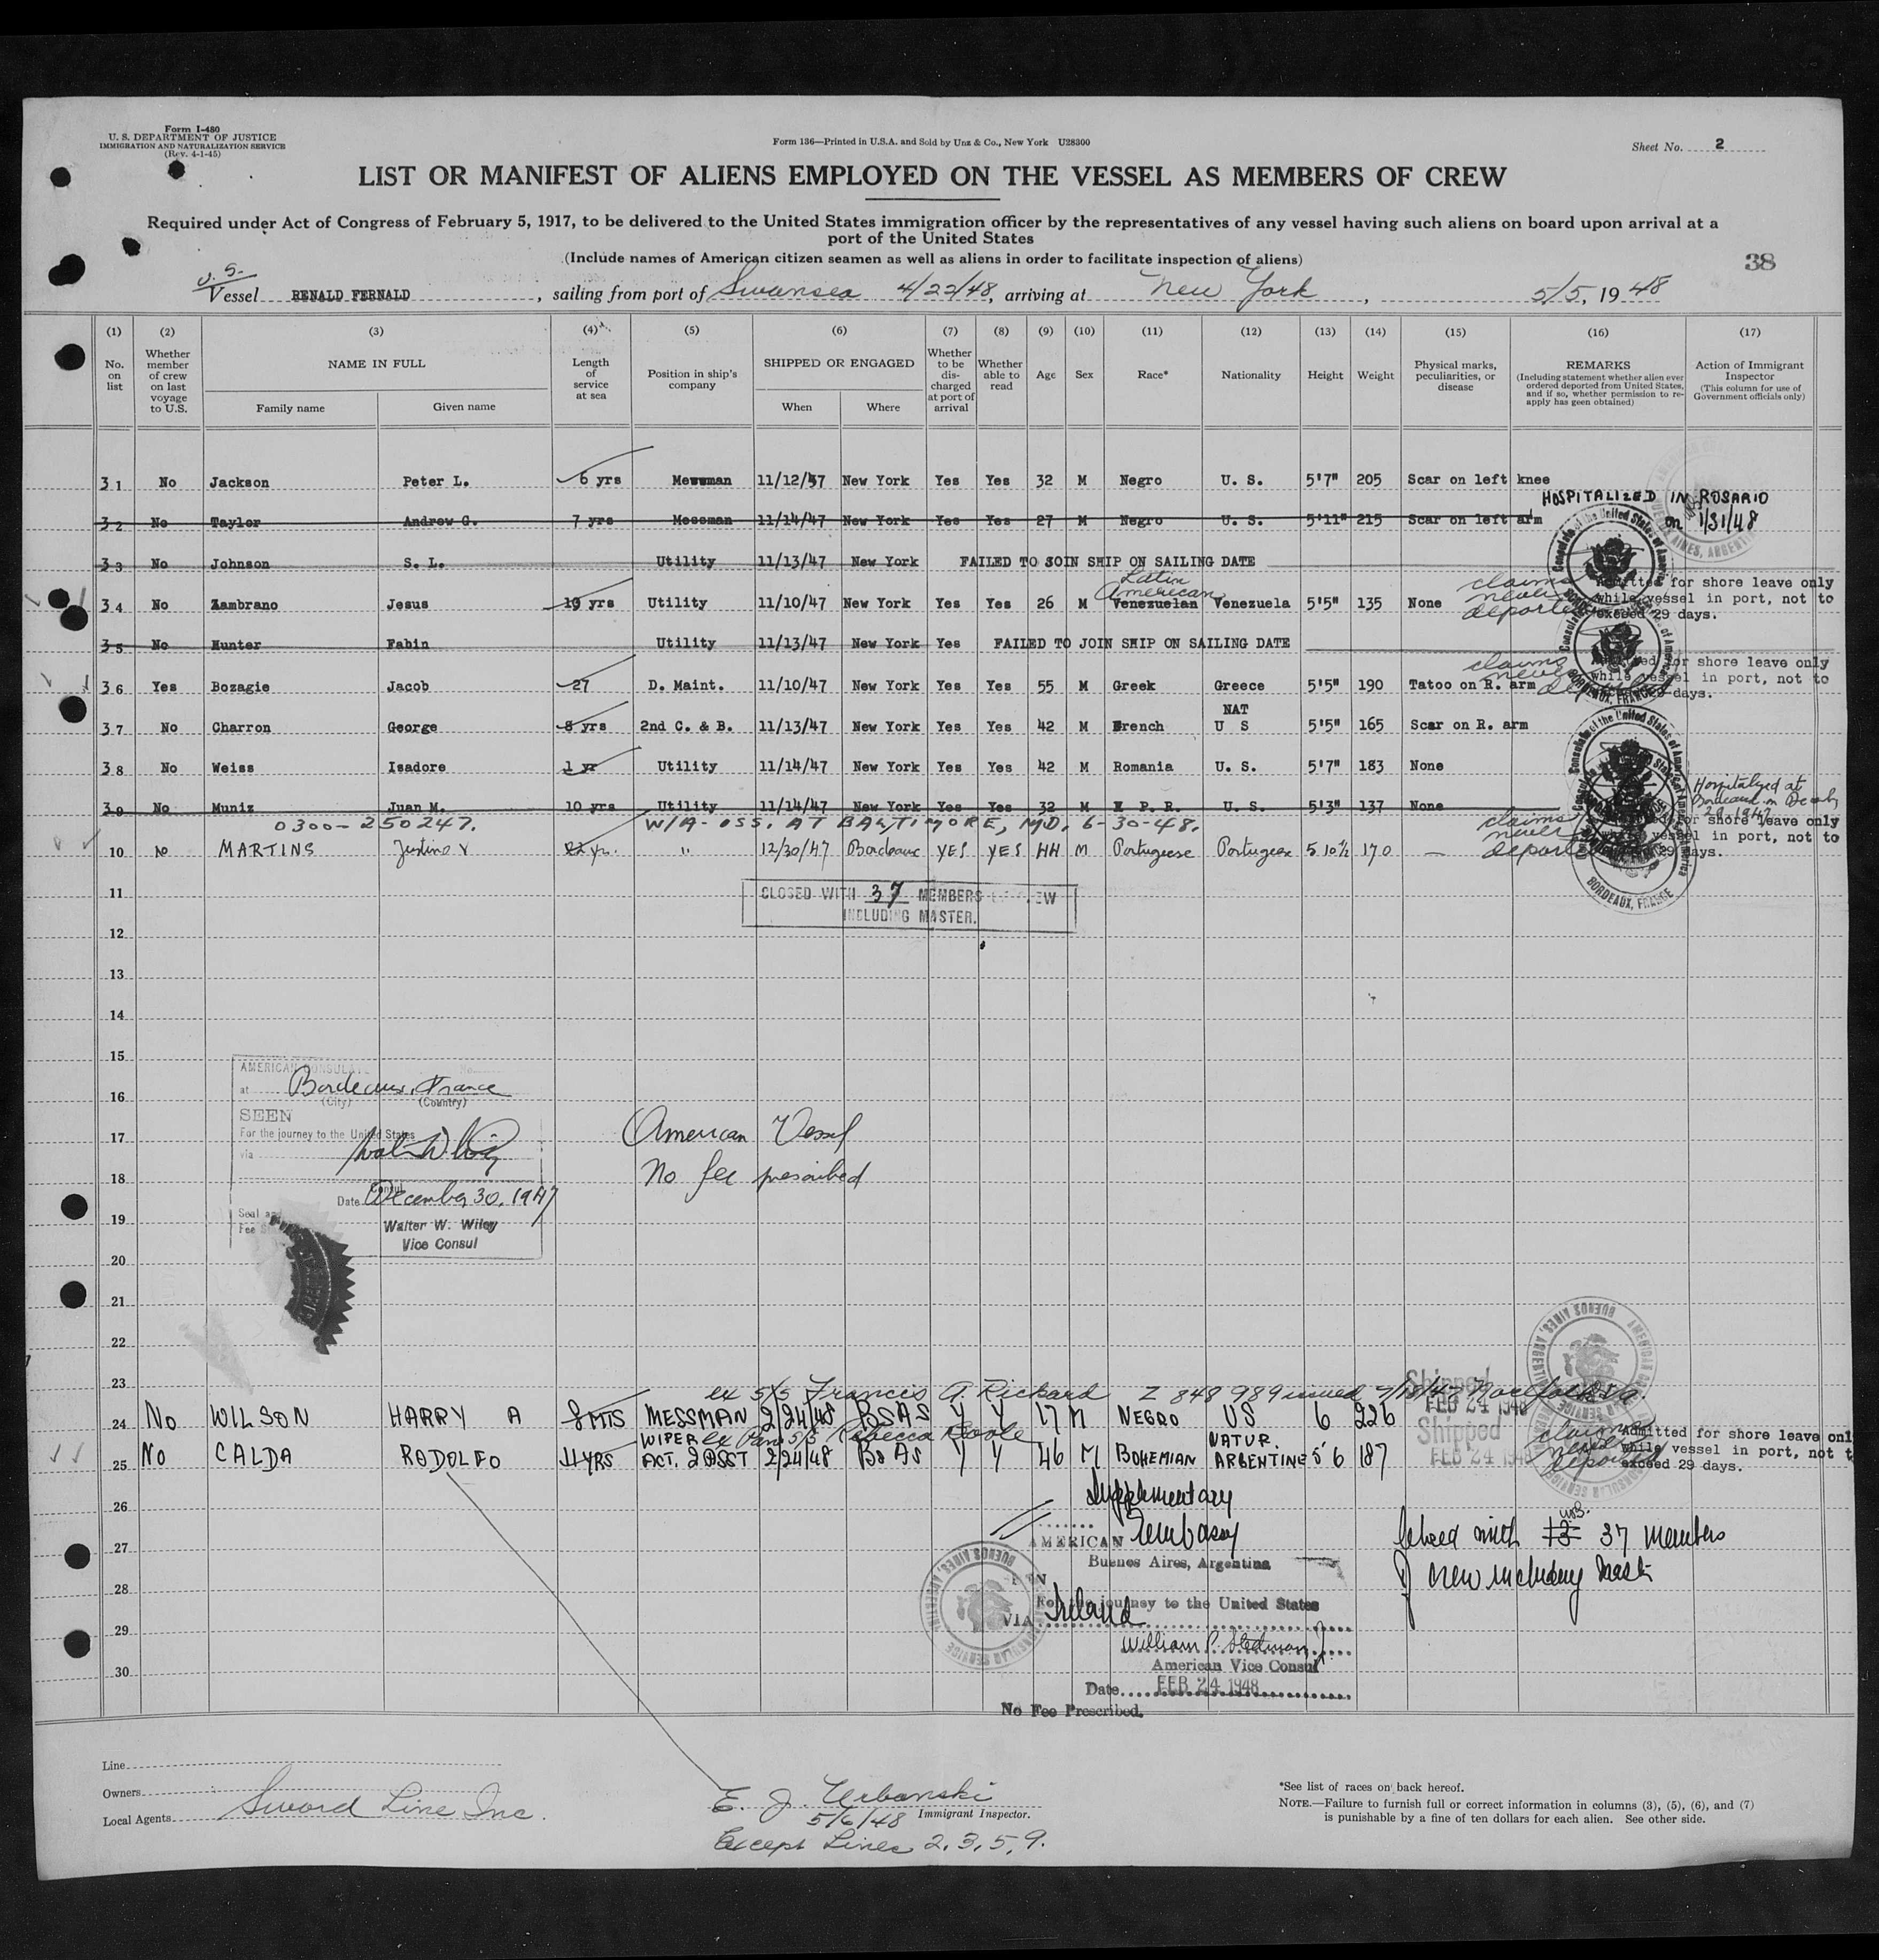 Form I-480
U. S. DEPARTMENT OF JUSTICE
IMMIGRATION AND NATURALIZATION SERVICE
(Rev. 4-1-45)
Form 136—Printed in U.S.A. and Sold by Unz & Co., New York U28300
Sheet No. 2
LIST OR MANIFEST OF ALIENS EMPLOYED ON THE VESSEL AS MEMBERS OF CREW
Required under Act of Congress of February 5, 1917, to be delivered to the United States immigration officer by the representatives of any vessel having such aliens on board upon arrival at a
port of the United States
(Include names of American citizen seamen as well as aliens in order to facilitate inspection of aliens)
38
Vessel RENALD FERNALD, sailing from port of Swansea 4/22/48, arriving at New York, 5/5, 1948
(1) (2) (3) (4) (5) (6) (7) (8) (9) (10) (11) (12) (13) (14) (15) (16) (17)
No. on list
Whether member of crew on last voyage to U.S.
NAME IN FULL
Family name Given name
Length of service at sea
Position in ship's company
SHIPPED OR ENGAGED
When Where
Whether to be discharged at port of arrival
Whether able to read
Age
Sex
Race*
Nationality
Height
Weight
Physical marks, peculiarities, or disease
REMARKS
(Including statement whether alien ever ordered deported from United States, and if so, whether permission to re-apply has geen obtained)
Action of Immigrant Inspector
(This column for use of Government officials only)
31 No Jackson Peter L. 6 yrs Messman 11/12/47 New York Yes Yes 32 M Negro U. S. 5'7" 205 Scar on left knee
HOSPITALIZED IN ROSARIO
on 1/31/48
32 No Taylor Andrew C. 7 yrs Messman 11/14/47 New York Yes Yes 27 M Negro U. S. 5'11" 215 Scar on left arm
33 No Johnson S. L. Utility 11/13/47 New York FAILED TO JOIN SHIP ON SAILING DATE
Latin American
34 No Zambrano Jesus 19 yrs Utility 11/10/47 New York Yes Yes 26 M Venezuelan Venezuela 5'5" 135 None
claims never deported
Admitted for shore leave only
while vessel in port, not to
exceed 29 days.
35 No Hunter Fabin Utility 11/13/47 New York Yes FAILED TO JOIN SHIP ON SAILING DATE
36 Yes Bozagie Jacob 27 D. Maint. 11/10/47 New York Yes Yes 55 M Greek Greece 5'5" 190 Tatoo on R. arm
claims never
for shore leave only
while vessel in port, not to
days.
NAT
37 No Charron George 8 yrs 2nd C. & B. 11/13/47 New York Yes Yes 42 M French U S 5'5" 165 Scar on R. arm
38 No Weiss Isadore 1 yr Utility 11/14/47 New York Yes Yes 42 M Romania U. S. 5'7" 183 None
Hospitalized at
Bordeaux
39 No Muniz Juan M. 10 yrs Utility 11/14/47 New York Yes Yes 32 M P. R. U. S. 5'3" 137 None
0300-250247. W/A-OSS. AT BALTIMORE, MD. 6-30-48.
claims never
for shore leave only
vessel in port, not to
29 days.
10 No MARTINS Justino V yr. " 12/30/47 Bordeaux YES YES 44 M Portuguese Portuguese 5 10½ 170 —
BORDEAUX, FRANCE
11
CLOSED WITH 37 MEMBERS CREW
INCLUDING MASTER.
12
13
14
15
AMERICAN CONSULATE
at Bordeaux, France
(City) (Country)
16
SEEN
For the journey to the United States
via
17 American Vessel
18 No fee prescribed
Consul
Date December 30, 1947
19
Seal and
Walter W. Wiley
Vice Consul
20
21
22
23
ex S/S Francis A. Rickard Z 848 989 issued
Shipped
FEB 24 1948
24 No WILSON HARRY A 8 MTS MESSMAN 2/24/48 BS AS Y Y 17 M NEGRO US 6 226
WIPER ex S/S Rebecca Boone NATUR.
Shipped
FEB 24 1948
25 No CALDA RODOLFO 11 YRS ACT. 2 ASST 2/24/48 BS AS Y Y 46 M BOHEMIAN ARGENTINE 5'6 187
claims never deported
Admitted for shore leave onl
while vessel in port, not t
exceed 29 days.
26
Supplementary
27
AMERICAN Embassy
Buenos Aires, Argentina
37 members
of crew including Master
28
For the journey to the United States
VIA Ireland
29
William P. Stedman Jr.
American Vice Consul
30
Date FEB 24 1948
No Fee Prescribed.
Line
Owners
Local Agents Sword Line Inc.
E. J. Urbanski
5/6/48 Immigrant Inspector.
Except Lines 2, 3, 5, 9.
*See list of races on back hereof.
NOTE.—Failure to furnish full or correct information in columns (3), (5), (6), and (7)
is punishable by a fine of ten dollars for each alien. See other side.